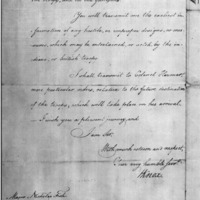 You will transmit me the earliest in-
formation of any hostile, or improper designs, or mea-
sures, which may be entertained, or acted by the in-
dians, or british troops.
I shall transmit to Colonel Harmar,
more particular orders, relative to the future destination
of the troops, which will take place on his arrival.
I wish you a pleasant journey, and
I am Sir,
With great esteem and respect,
Your very humble servt.
HKnox
Major Nicholas Fish